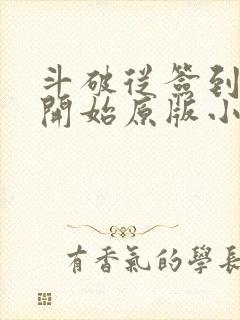 斗破從簽到
開始原版小
有香氣的學長